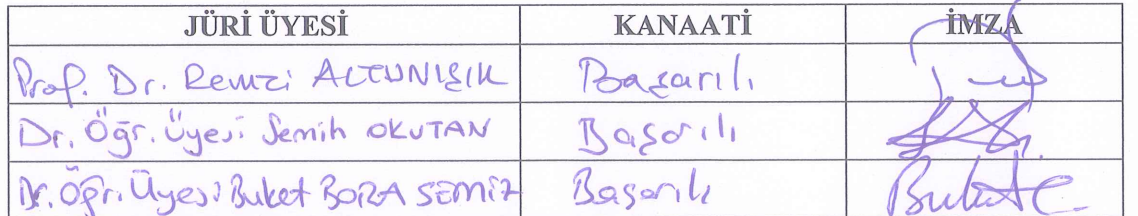 JÜRİ ÜYESİ KANAATİ İMZA
Prof. Dr. Remzi ALTUNIŞIK Başarılı
Dr. Öğr. Üyesi Semih OKUTAN Başarılı
Dr. Öğr. Üyesi Buket BORA SEMİZ Başarılı